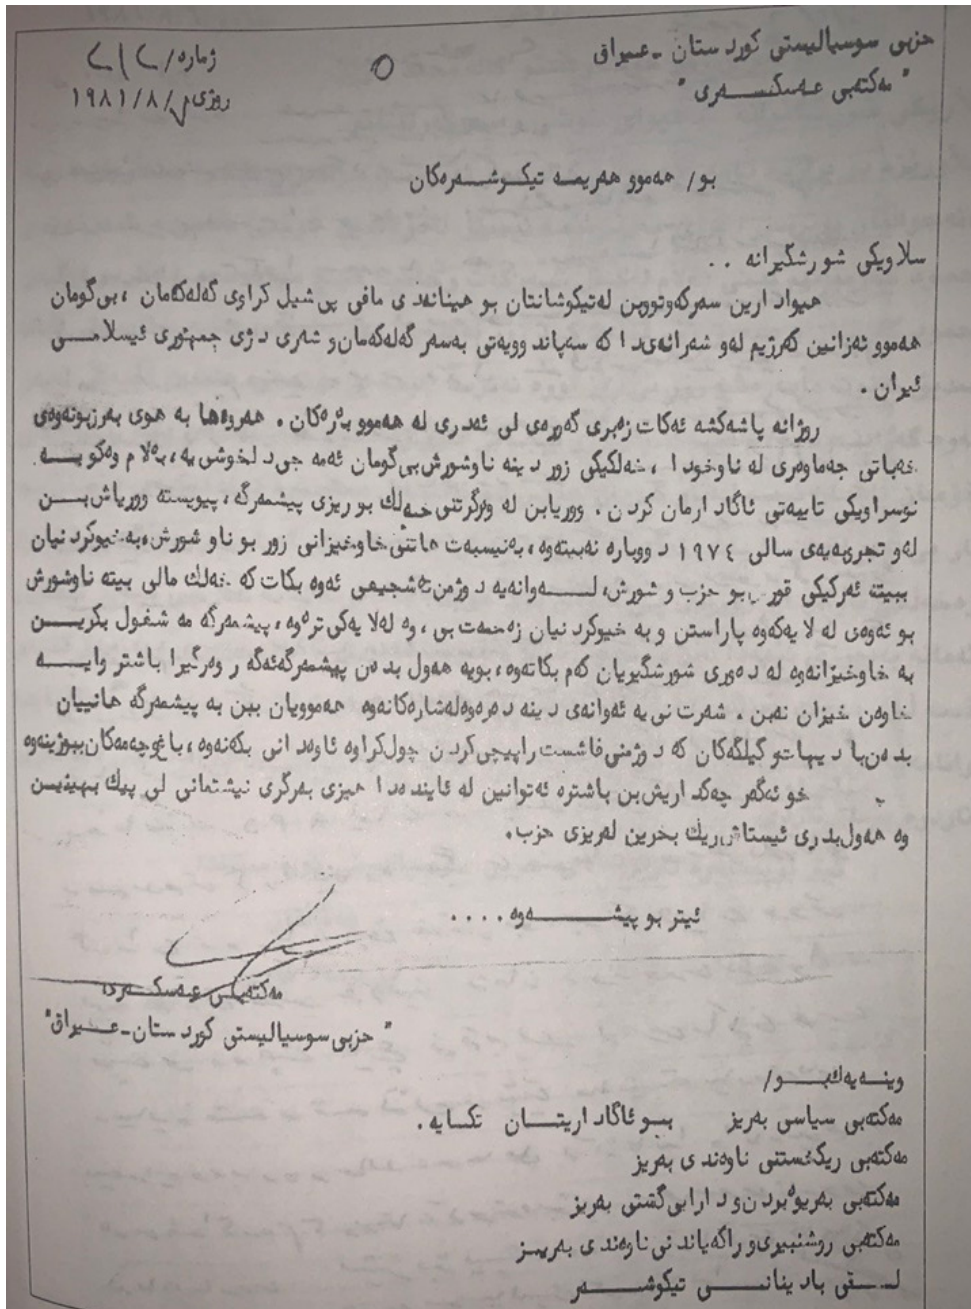 حزبی سوسیالیستی کوردستان ـ عیراق
ژماره/
" مەکتەبی عەسکەری "
روژی / ٨ / ١٩٨١
بو/ هەموو هەریمە تیکوشەرەکان
سلاویکی شورشگیرانە . .
هیوادارین سەرکەوتووبن لەتیکوشانتان بو هینانەدی مافی پی شیل کراوی گەلەکەمان ، بی گومان
هەموو ئەزانین کەرژیم لەو شەرانەیدا کە سەپاندوویەتی بەسەر گەلەکەمان و شەری دژی جمهوری ئیسلامی
ئیران .
روژانە پاشەکشە ئەکات زەبری گەورەی لی ئەدری لە هەموو بارەکان . هەروەها بە هوی بەرزبونەوەی
خەباتی جەماوەری لە ناوخودا ، خەلکیکی زور دینە ناوشورش بی گومان ئەمە جی دلخوشی یە ، بەلام وەکو بە
نوسراویکی تایبەتی ئاگادارمان کردن . ووریابن لە وەرگرتنی خەلك بو ریزی پیشمەرگە ، پیویستە ووریاش بن
لەو تجربەیەی سالی ١٩٧٤ دووبارە نەبیتەوە ، بەنیسبەت هاتنی خاوخیزانی زور بو ناو شورش ، بەخیوکردنیان
ببیتە ئەرکیکی قورس بو حزب و شورش ، لەوانەیە دوژمن تەشجیعی ئەوە بکات کە خەلك مالی بیتە ناوشورش
بو ئەوەی لە لایەکەوە پاراستن و بە خیوکردنیان زەحمەت بی ، وە لەلایەکی ترەوە ، پیشمەرگە مەشغول بکرین
بە خاوخیزانەوە لە دەوری شورشگیریان کەم بکاتەوە ، بویە هەول بدەن پیشمەرگەئەگەر وەرگیرا باشتر وایە
خاوەن خیزان نەبن . شەرت نی یە ئەوانەی دینە دەرەوەلەشارەکانەوە هەموویان ببن بە پیشمەرگە هانییان
بدەن با دیهات و گیلگەکان کە دوژمنی فاشست راپیچی کردن چول کراوە ئاوەدانی بکەنەوە ، باغوچەمەکان ببوژینەوە
خو ئەگەر چەکداریش بن باشترە ئەتوانین لە ئایندەدا هیزی بەرگری نیشتمانی لی پیك بهینین
وە هەول بدری ئیستاش ریك بخرین لەریزی حزب .
ئیتر بو پیشەوە . . . .
مەکتەبی عەسکەری
" حزبی سوسیالیستی کوردستان ـ عیراق "
وینەیەك بو/
مەکتەبی سیاسی بەریز بو ئاگاداریتان تکایە .
مەکتەبی ریکخستنی ناوەندی بەریز
مەکتەبی بەریوەبردن و دارایی گشتی بەریز
مەکتەبی روشنبیری و راگەیاندنی ناوەندی بەریز
لقی بادینانی تیکوشەر